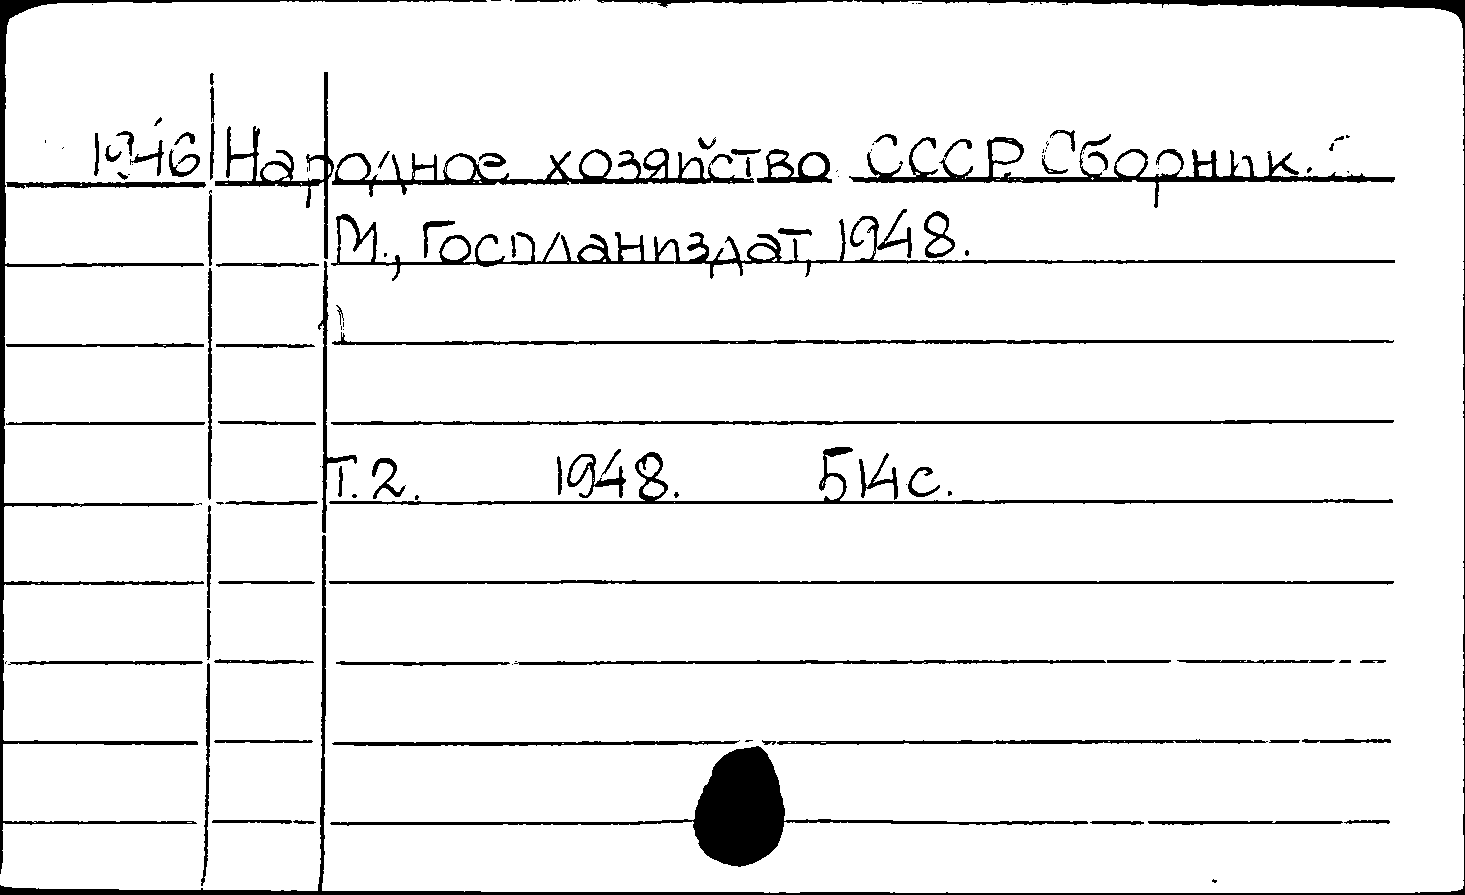 1946 Народное хозяйство СССР. Сборник.
М., Госпланиздат, 1948.
Т.2. 1948. 514с.